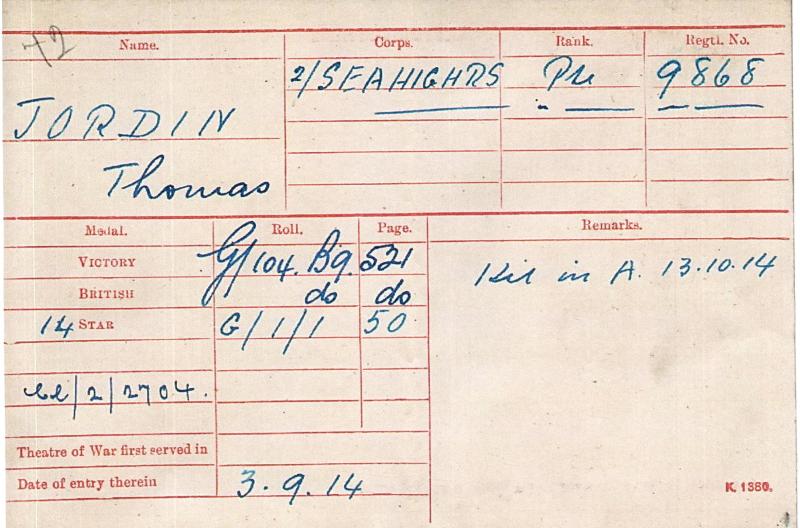 72
Name. Corps. Rank. Regtl. No.
2/SEAHIGHRS Pte 9868
JORDIN
Thomas
Medal. Roll. Page. Remarks.
VICTORY G/104. B9. 521
BRITISH do do
14 STAR G/1/1 50
Kil in A. 13.10.14
/2/2704.
Theatre of War first served in
Date of entry therein 3.9.14
K. 1380.